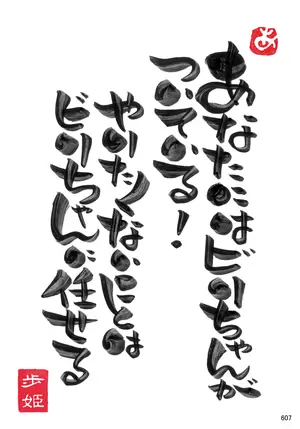 あ
あなたにはビンちゃんが
ついている!
やりたくないことは
ビンちゃんに任せる
歩姫
607